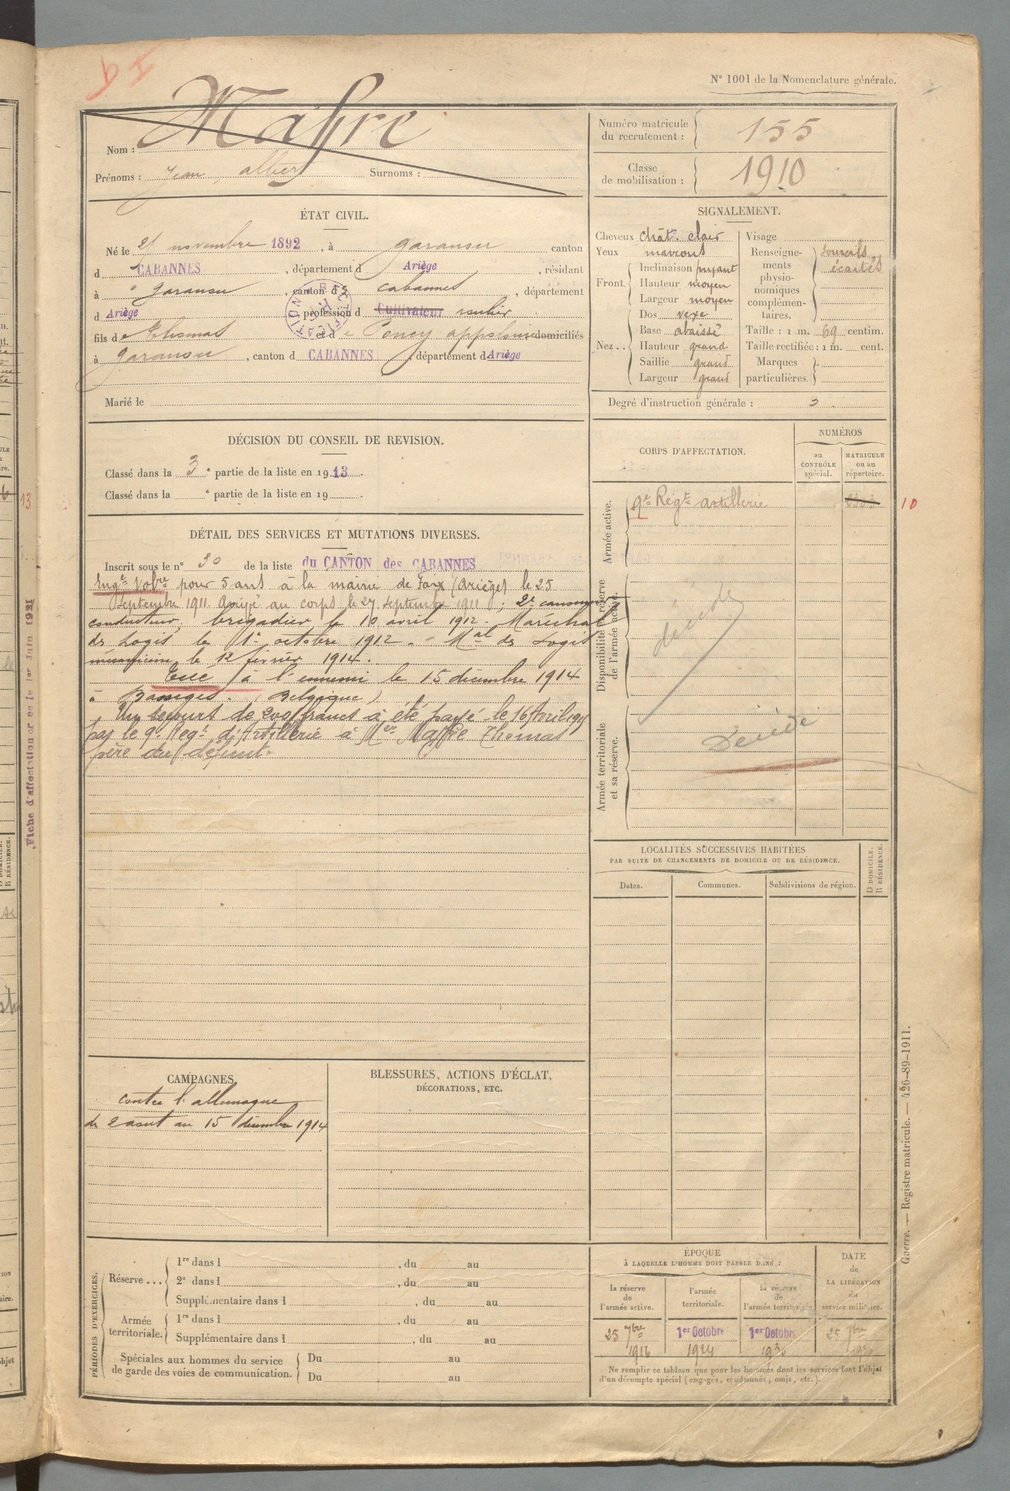 N° 1001 de la Nomenclature générale.
Nom : Maffre
Prénoms : Jean, albert Surnoms :
Numéro matricule du recrutement : 155
Classe de mobilisation : 1910
ÉTAT CIVIL.
Né le 21 novembre 1892, à garanou canton
d CABANNES, département d Ariège, résidant
à garanou, canton d cabannes, département
d Ariège, profession d Cultivateur
fils d Thomas et d domiciliés
à garanou, canton d CABANNES, département d Ariège
Marié le
SIGNALEMENT.
Cheveux chât. clair
Yeux marrons
Front. Inclinaison fuyant
Hauteur moyen
Largeur moyen
Nez.. Dos vexe
Base abaissé
Hauteur grand
Saillie grand
Largeur grand
Visage
Renseignements physionomiques complémentaires. sourcils écartés
Taille : 1 m. 69 centim.
Taille rectifiée : 1 m. cent.
Marques particulières.
Degré d'instruction générale : 3
DÉCISION DU CONSEIL DE REVISION.
Classé dans la 3e partie de la liste en 1913.
Classé dans la e partie de la liste en 19
CORPS D'AFFECTATION.
NUMÉROS
au CONTRÔLE spécial.
MATRICULE ou au répertoire.
Armée active.
9e Regt artillerie
10
Disponibilité et réserve de l'armée active.
décédé
Armée territoriale et sa réserve.
Décédé
DÉTAIL DES SERVICES ET MUTATIONS DIVERSES.
Inscrit sous le n° 30 de la liste du CANTON des CABANNES
Engé Volre pour 5 ans à la mairie de Foix (Ariège) le 25
Septembre 1911. Arrivé au corps le 27 septembre 1911; 2e canonnier
conducteur, brigadier le 10 avril 1912. Maréchal
des Logis le 1er octobre 1912. - Mal des Logis
le 12 février 1914.
Tué à l'ennemi le 15 décembre 1914
à (Belgique)
Un secours de 200 francs a été payé le 16 Avril 1915
par le 9e Regt d'Artillerie à Mr Maffre Thomas
père du défunt.
LOCALITÉS SUCCESSIVES HABITÉES
PAR SUITE DE CHANGEMENTS DE DOMICILE OU DE RÉSIDENCE.
Dates. Communes. Subdivisions de région. D DOMICILE. R RÉSIDENCE.
CAMPAGNES.
contre l'allemagne
du 2 aout au 15 décembre 1914
BLESSURES, ACTIONS D'ÉCLAT,
DÉCORATIONS, ETC.
PÉRIODES D'EXERCICES.
Réserve... 1re dans l , du au
2e dans l , du au
Supplémentaire dans l , du au
Armée territoriale. 1re dans l , du au
Supplémentaire dans l , du au
Spéciales aux hommes du service de garde des voies de communication. Du au
Du au
ÉPOQUE
À LAQUELLE L'HOMME DOIT PASSER DANS :
la réserve de l'armée active.
l'armée territoriale.
la réserve de l'armée territoriale
DATE de LA LIBÉRATION du service militaire.
25 7bre 1916
1er Octobre 1924
1er Octobre
25 7bre
Ne remplir ce tableau que pour les hommes dont les services font l'objet
d'un décompte spécial (engagés, condamnés, omis, etc.).
Guerre. — Registre matricule. — 426-89-1911.
Fiche d'affectation
13